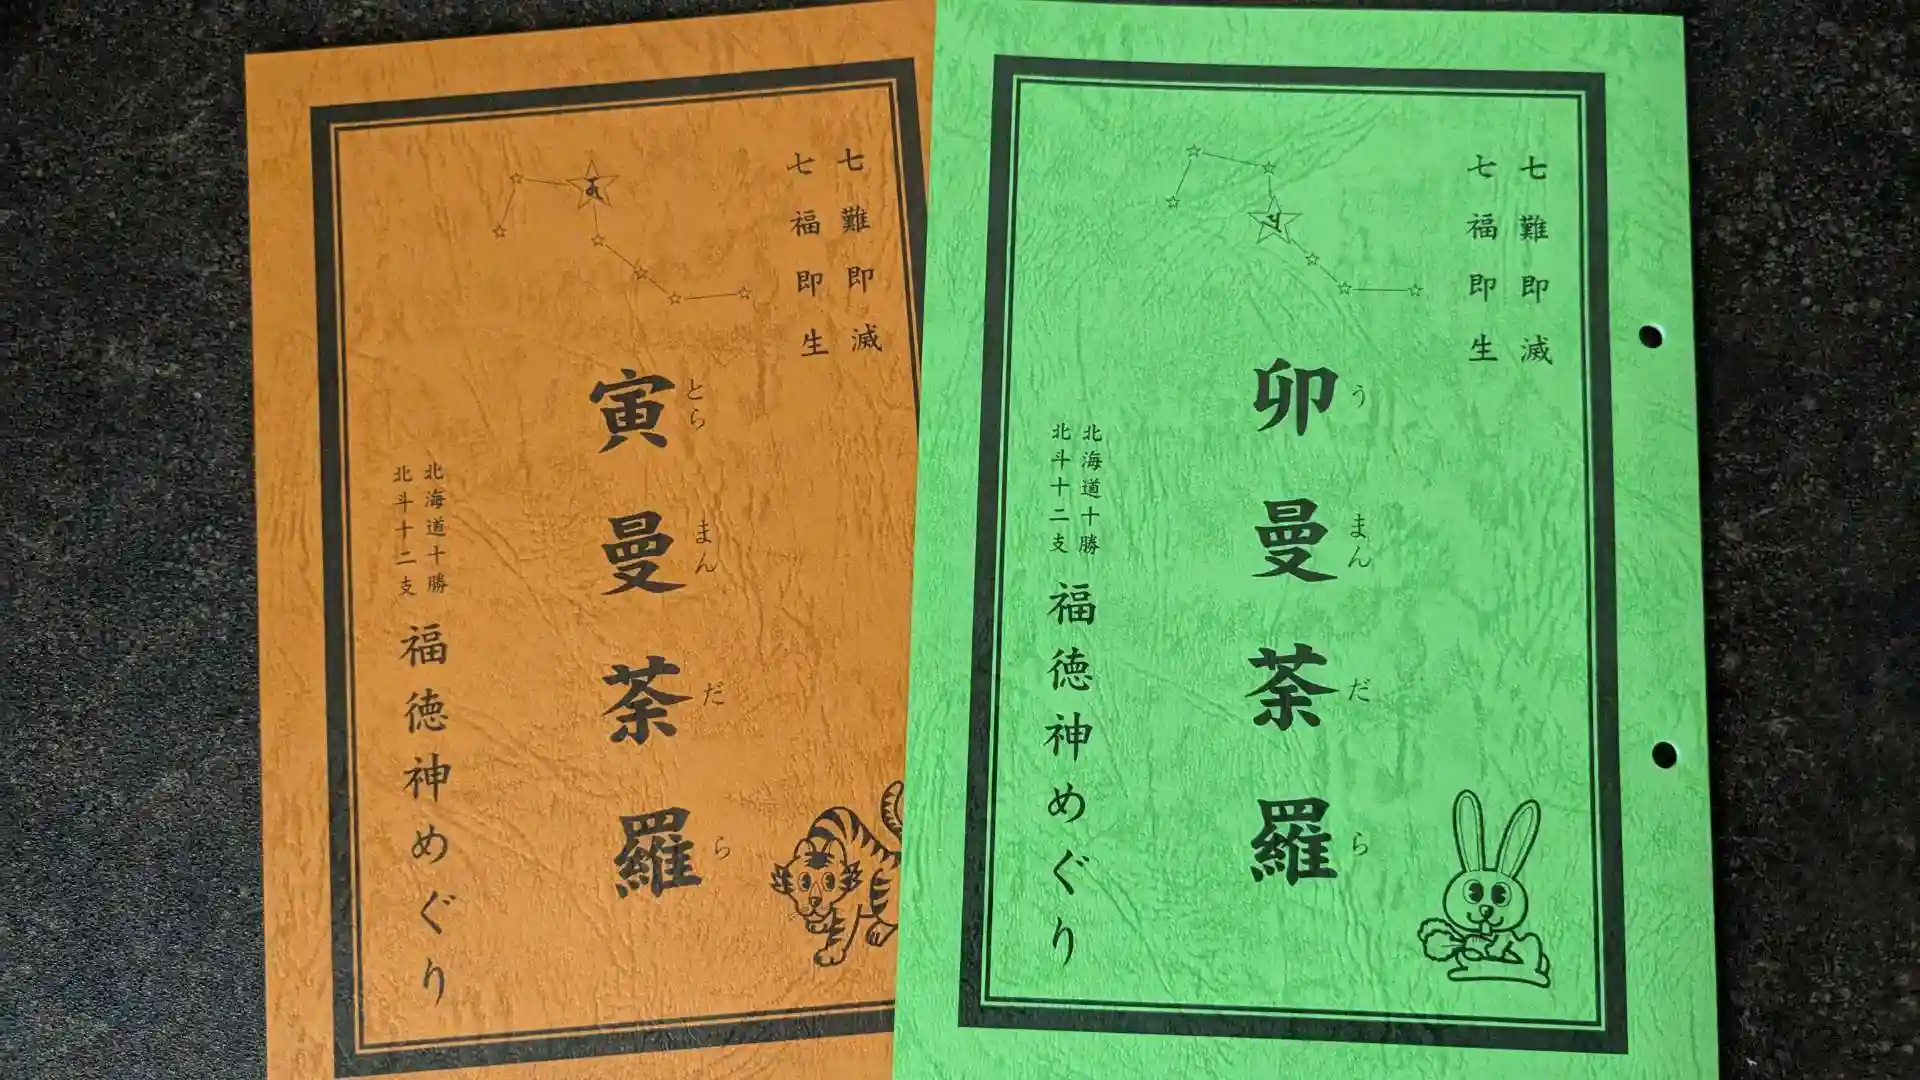 七難即滅
七福即生
寅曼荼羅
とら
まん
だ
ら
北海道十勝
北斗十二支
福徳神めぐり
七難即滅
七福即生
卯曼荼羅
う
まん
だ
ら
北海道十勝
北斗十二支
福徳神めぐり